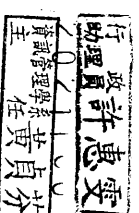 行政
助理員 許惠雯
資訊管理學系
主任 黃貞芬